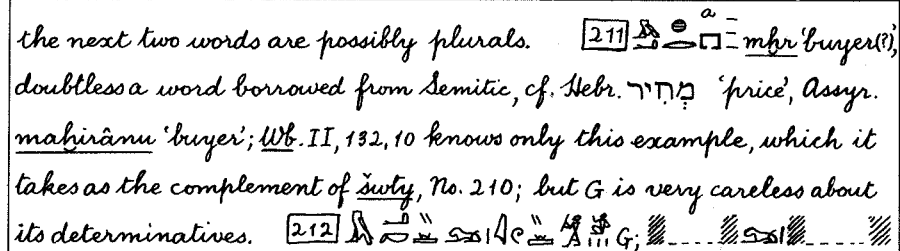 the next two words are possibly plurals. 211 mḫr 'buyer(?)',
doubtless a word borrowed from Semitic, cf. Hebr. מְחִיר 'price', Assyr.
maḫirânu 'buyer'; Wb. II, 132, 10 knows only this example, which it
takes as the complement of šwty, No. 210; but G is very careless about
its determinatives. 212 G;